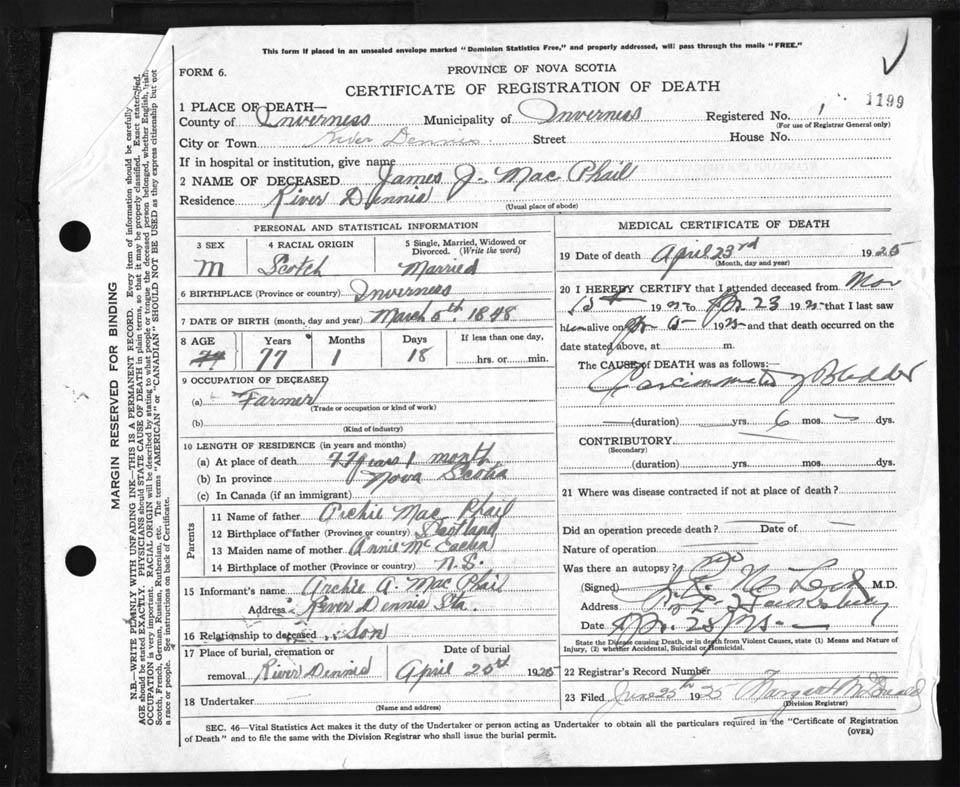 This form if placed in an unsealed envelope marked "Dominion Statistics Free," and properly addressed, will pass through the mails "FREE."
FORM 6.
PROVINCE OF NOVA SCOTIA
CERTIFICATE OF REGISTRATION OF DEATH
1199
1 PLACE OF DEATH—
County of Inverness Municipality of Inverness Registered No.
(For use of Registrar General only)
City or Town River Dennis Street House No.
If in hospital or institution, give name
2 NAME OF DECEASED James J. Mac Phail
Residence River Dennis
(Usual place of abode)
PERSONAL AND STATISTICAL INFORMATION
3 SEX 4 RACIAL ORIGIN 5 Single, Married, Widowed or Divorced. (Write the word)
M Scotch Married
6 BIRTHPLACE (Province or country) Inverness
7 DATE OF BIRTH (month, day and year) March 5th 1848
8 AGE Years Months Days If less than one day,
77 1 18 hrs. or min.
9 OCCUPATION OF DECEASED
(a) Farmer
(Trade or occupation or kind of work)
(b)
(Kind of industry)
10 LENGTH OF RESIDENCE (in years and months)
(a) At place of death 77 years 1 month
(b) In province Nova Scotia
(c) In Canada (if an immigrant)
Parents
11 Name of father Archie Mac Phail
12 Birthplace of father (Province or country) Scotland
13 Maiden name of mother Annie Mc Eachen
14 Birthplace of mother (Province or country) N.S.
15 Informant's name Archie A. Mac Phail
Address River Dennis Sta.
16 Relationship to deceased Son
17 Place of burial, cremation or removal Date of burial
River Dennis April 25th 1925
18 Undertaker
(Name and address)
MEDICAL CERTIFICATE OF DEATH
19 Date of death April 23rd 1925
(Month, day and year)
20 I HEREBY CERTIFY that I attended deceased from Mar
1925 to 23 192 that I last saw
him alive on 192 and that death occurred on
date stated above, at m.
The CAUSE of DEATH was as follows:—
Carcinomata of Bladder
(duration) yrs. 6 mos. dys.
CONTRIBUTORY
(Secondary)
(duration) yrs. mos. dys.
21 Where was disease contracted if not at place of death?
Did an operation precede death? Date of
Nature of operation
Was there an autopsy? no
(Signed) M.D.
Address Hawkesbury
Date
State the Disease causing Death, or in death from Violent Causes, state (1) Means and Nature of
Injury, (2) whether Accidental, Suicidal or Homicidal.
22 Registrar's Record Number
23 Filed June 25th 1925 Margaret
(Division Registrar)
SEC. 46—Vital Statistics Act makes it the duty of the Undertaker or person acting as Undertaker to obtain all the particulars required in the "Certificate of Registration
of Death" and to file the same with the Division Registrar who shall issue the burial permit.
(OVER)
MARGIN RESERVED FOR BINDING
N.B.—WRITE PLAINLY WITH UNFADING INK—THIS IS A PERMANENT RECORD. Every item of information should be carefully
AGE should be stated EXACTLY. PHYSICIANS should STATE CAUSE OF DEATH in plain terms, so that it may be properly classified. Exact
OCCUPATION is very important. RACIAL ORIGIN will be described by stating to what people or tongue the deceased person belonged, whether English, Irish,
Scotch, French, German, Russian, Ruthenian, etc. The terms "AMERICAN" or "CANADIAN" SHOULD NOT BE USED as they express citizenship but not
a race or people. See instructions on back of Certificate.